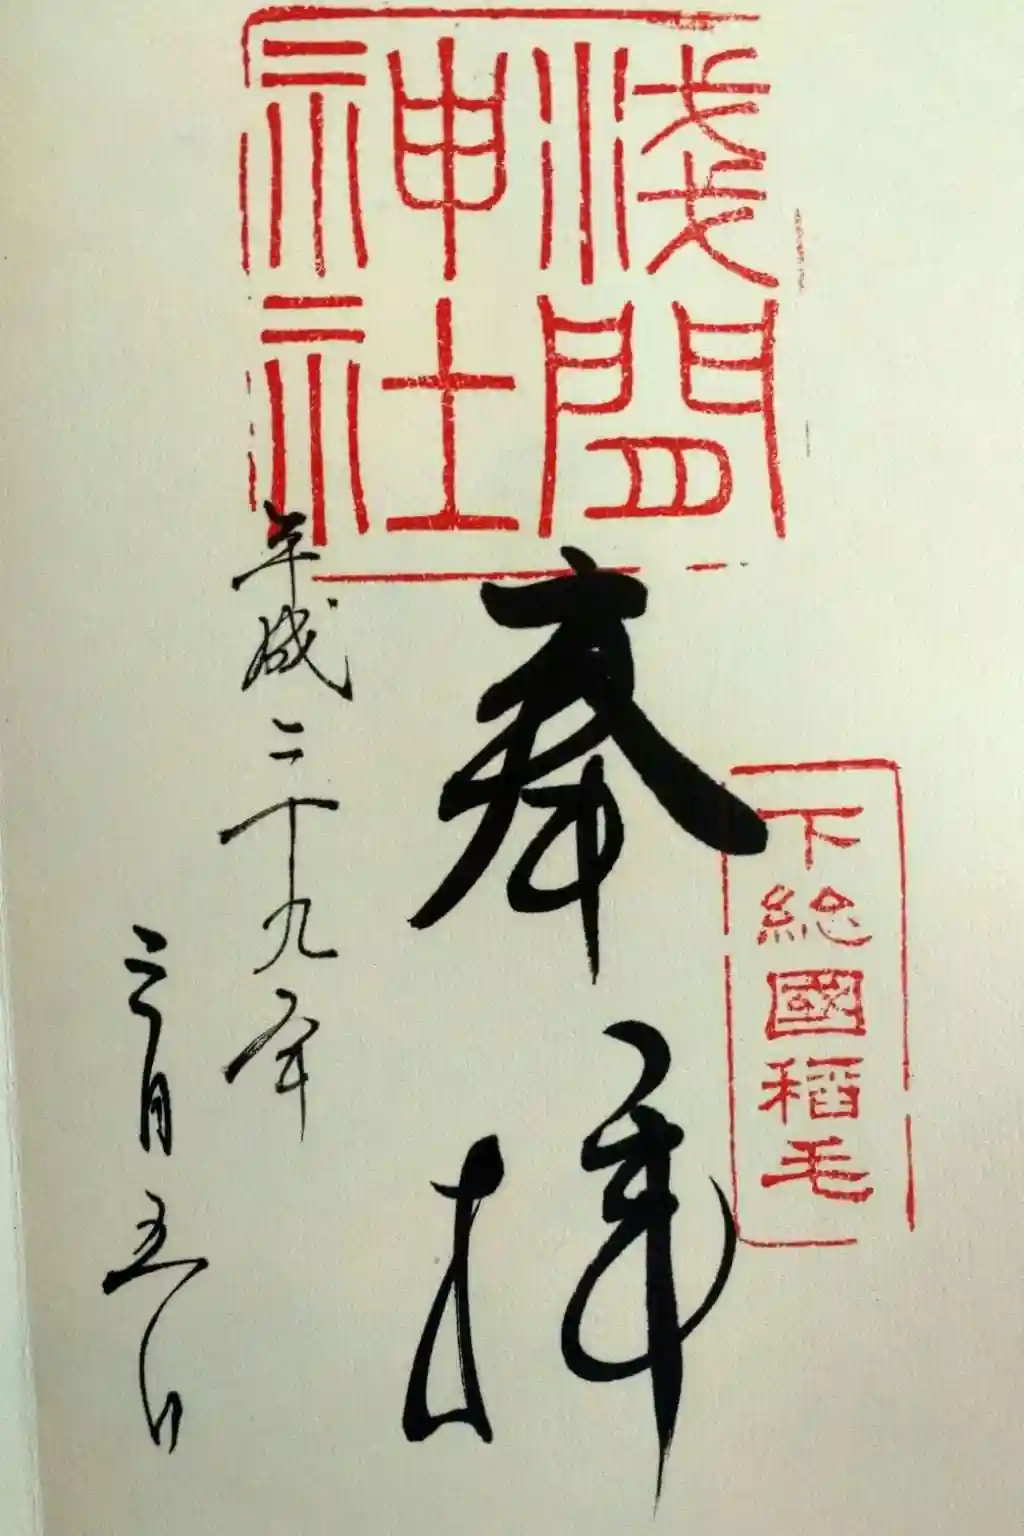 淺間
神社
下總國稲毛
奉拝
平成二十九年
三月五日